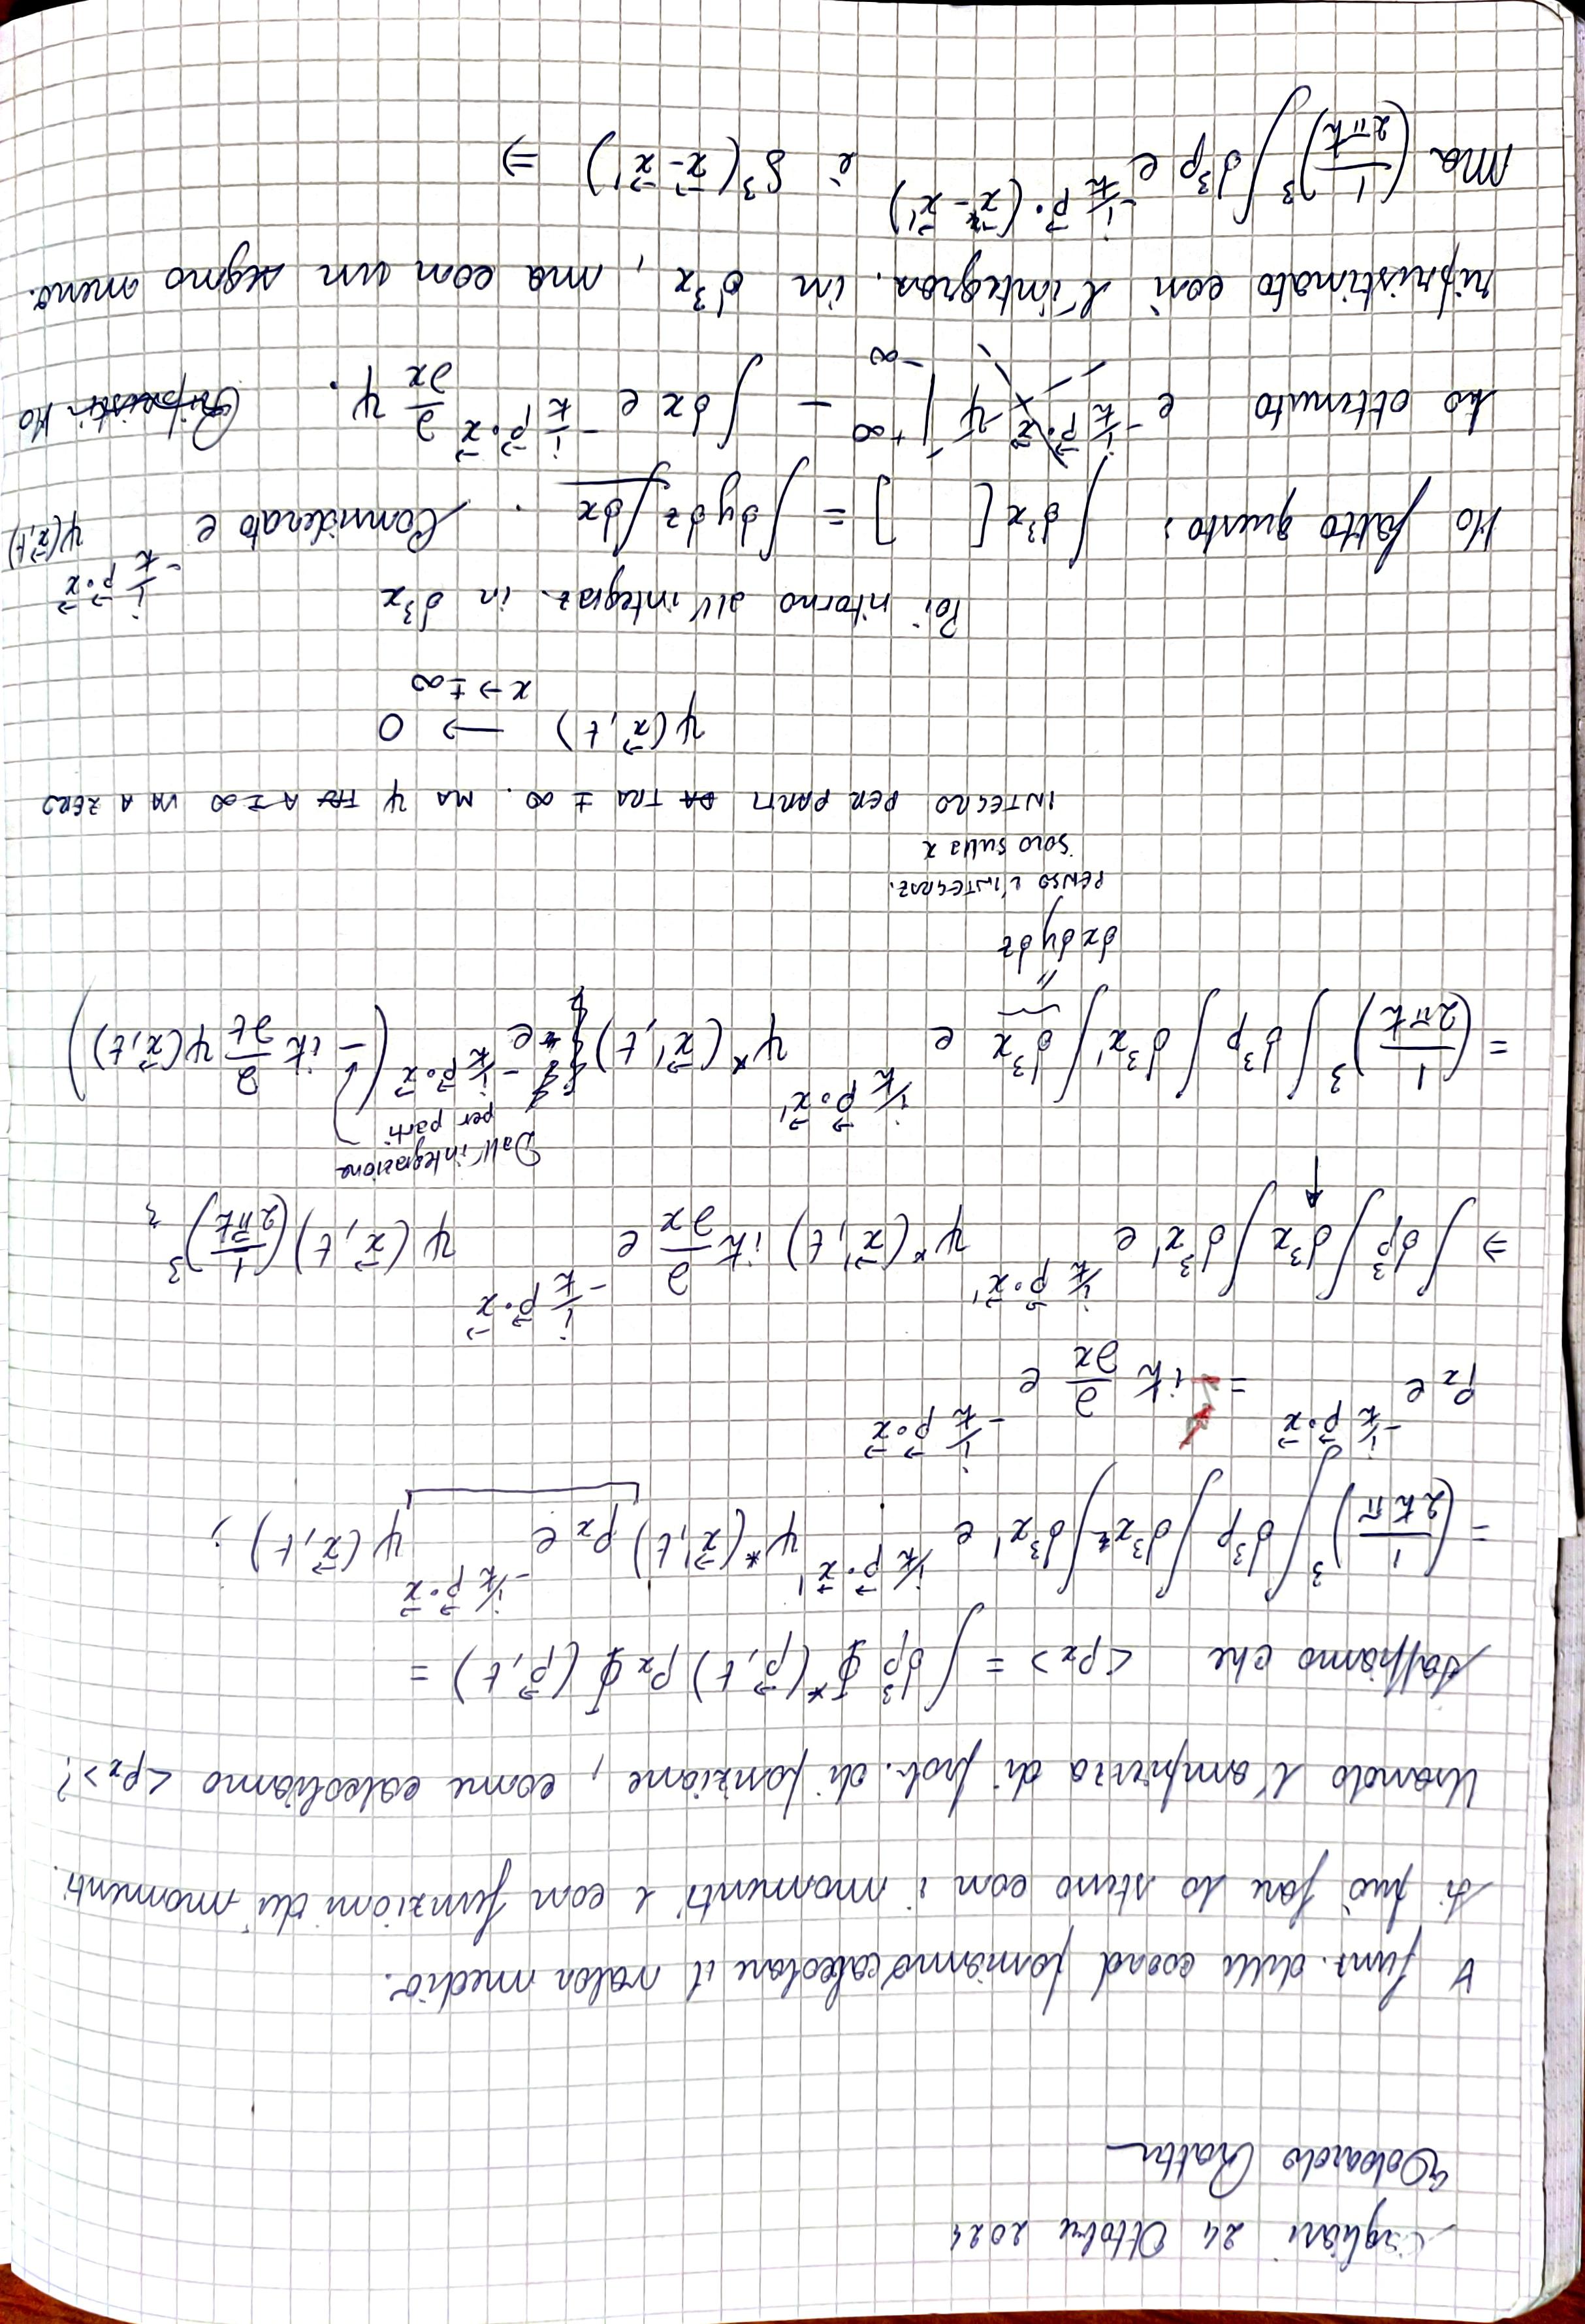 Cagliari 24 Ottobre 2024
Edoardo Rattu
∀ funz. delle coord possiamo calcolare il valor medio.
Si può fare lo stesso con i momenti e con funzioni dei momenti.
Usando l'ampiezza di prob. di posizione, come calcoliamo <pₓ>?
Sappiamo che <pₓ> = ∫ d³p ϕ*(p⃗, t) pₓ ϕ (p⃗, t) =
= (1/2ħπ)³ ∫ d³p ∫ d³x ∫ d³x' e^{i/ħ p⃗·x⃗'} ψ*(x⃗', t) pₓ e^{-i/ħ p⃗·x⃗} ψ(x⃗, t) ;
pₓ e^{-i/ħ p⃗·x⃗} = iħ ∂/∂x e^{-i/ħ p⃗·x⃗}
⇒ ∫ d³p ∫ d³x ∫ d³x' e^{i/ħ p⃗·x⃗'} ψ*(x⃗', t) iħ ∂/∂x e^{-i/ħ p⃗·x⃗} ψ(x⃗, t) (1/2πħ)³
Dall'integrazione
per parti
= (1/2πħ)³ ∫ d³p ∫ d³x' ∫ d³x e^{i/ħ p⃗·x⃗'} ψ*(x⃗', t) e^{-i/ħ p⃗·x⃗} (- iħ ∂/∂t ψ(x⃗, t))
"
dx dy dz
PENSO L'INTEGRAZ.
solo sulla x
INTEGRO PER PARTI DA TRA ± ∞. MA ψ A ± ∞ VA A ZERO
ψ(x⃗, t) → 0
x → ± ∞
Poi ritorno all'integraz. in d³x
Ho fatto questo: ∫ d³x [ ] = ∫ dy dz ∫ dx . Considerato e^{-i/ħ p⃗·x⃗} ψ(x⃗, t)
ho ottenuto e^{-i/ħ p⃗·x⃗} ψ |_{-∞}^{+∞} - ∫ dx e^{-i/ħ p⃗·x⃗} ∂/∂x ψ. Ripristi Ho
ripristinato così l'integraz. in d³x, ma con un segno meno.
Ma (1/2πħ)³ ∫ d³p e^{-i/ħ p⃗·(x⃗ - x⃗')} è δ³(x⃗ - x⃗') ⇒